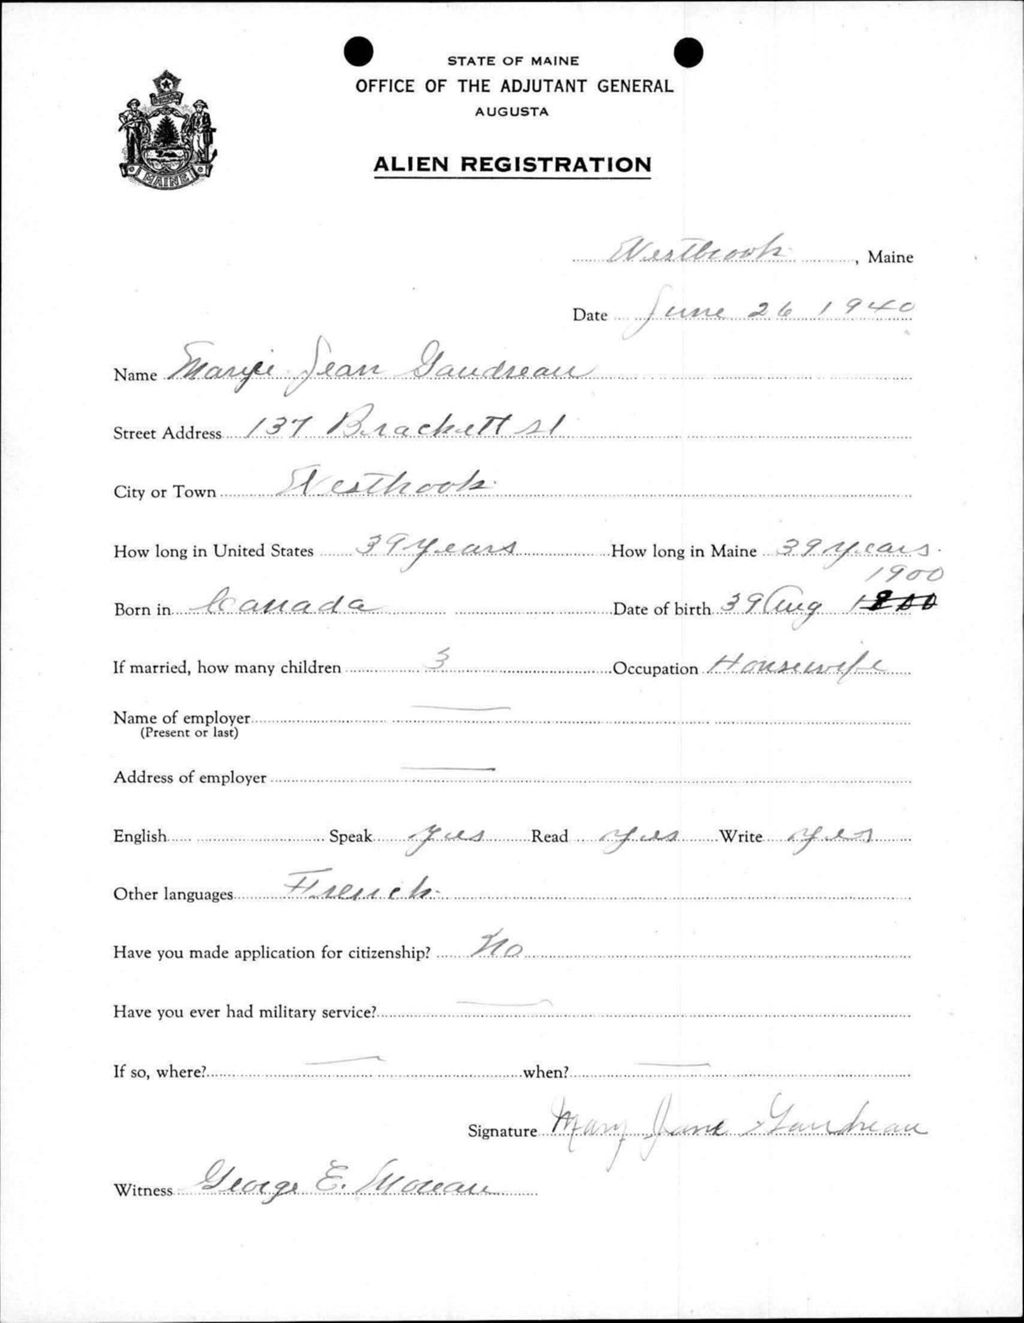 STATE OF MAINE
OFFICE OF THE ADJUTANT GENERAL
AUGUSTA
MAINE
ALIEN REGISTRATION
Westbrook, Maine
Date June 26 1940
Name Jean Gaudreau
Street Address 137 Brackett St
City or Town Westbrook
How long in United States 39 years How long in Maine 39 years
1900
Born in Canada Date of birth 39 Aug
If married, how many children 3 Occupation Housewife
Name of employer
(Present or last)
Address of employer
English Speak yes Read yes Write yes
Other languages French
Have you made application for citizenship? No
Have you ever had military service?
If so, where? when?
Signature Mary Jane Gaudreau
Witness George E. Moreau